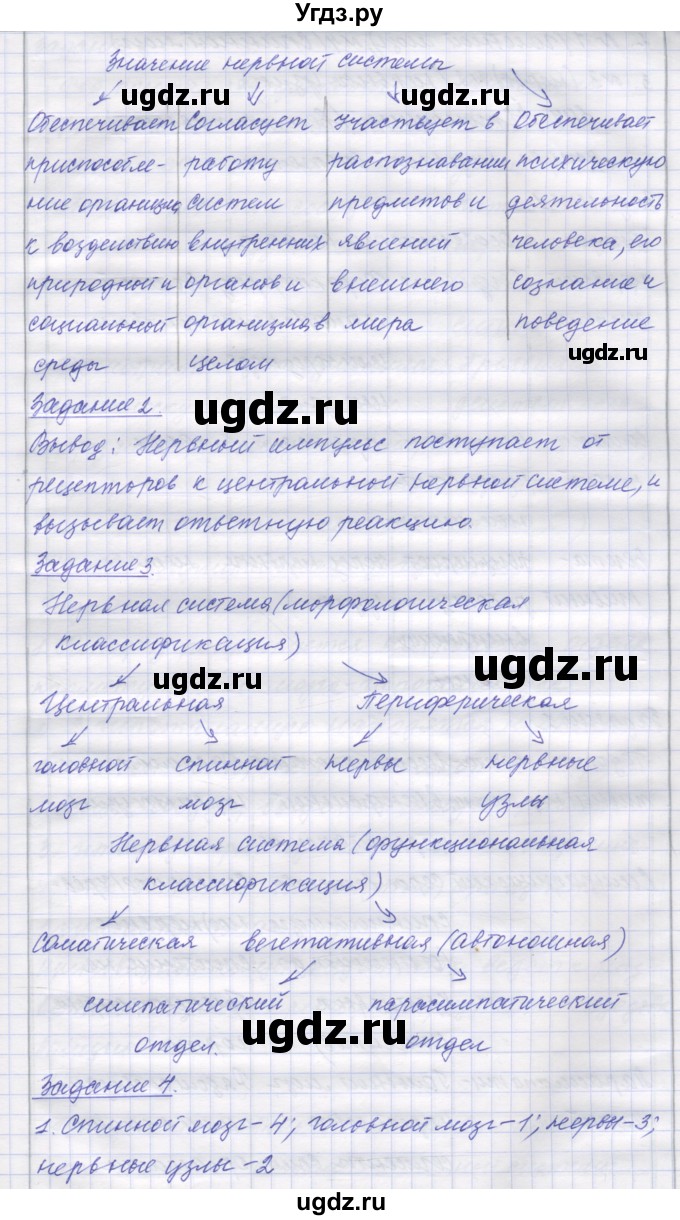 Угдз.ру
Значение нервной системы
ugdz.ru ugdz.ru
Обеспечивает Согласует участвует в Обеспечивает
приспособле- работу распознавании психическую
ние организма систем предметов и деятельность
к воздействию внутренних явлений человека, его
природной и органов и внешнего сознание и
социальной организма в мира поведение
среды целом
ugdz.ru
Задание 2.
ugdz.ru
Вывод: Нервный импульс поступает от
рецепторов к центральной нервной системе, и
вызывает ответную реакцию.
Задание 3.
Нервная система (морфологическая
классификация)
ugdz.ru
ugdz.ru
Центральная Периферическая
головной спинной нервы нервные
мозг мозг узлы
Нервная система (функциональная
классификация)
соматическая вегетативная (автономная)
симпатический парасимпатический
ugdz.ru
отдел. отдел
Задание 4.
1. Спинной мозг - 4; головной мозг - 1; нервы - 3;
нервные узлы - 2
ugdz.ru